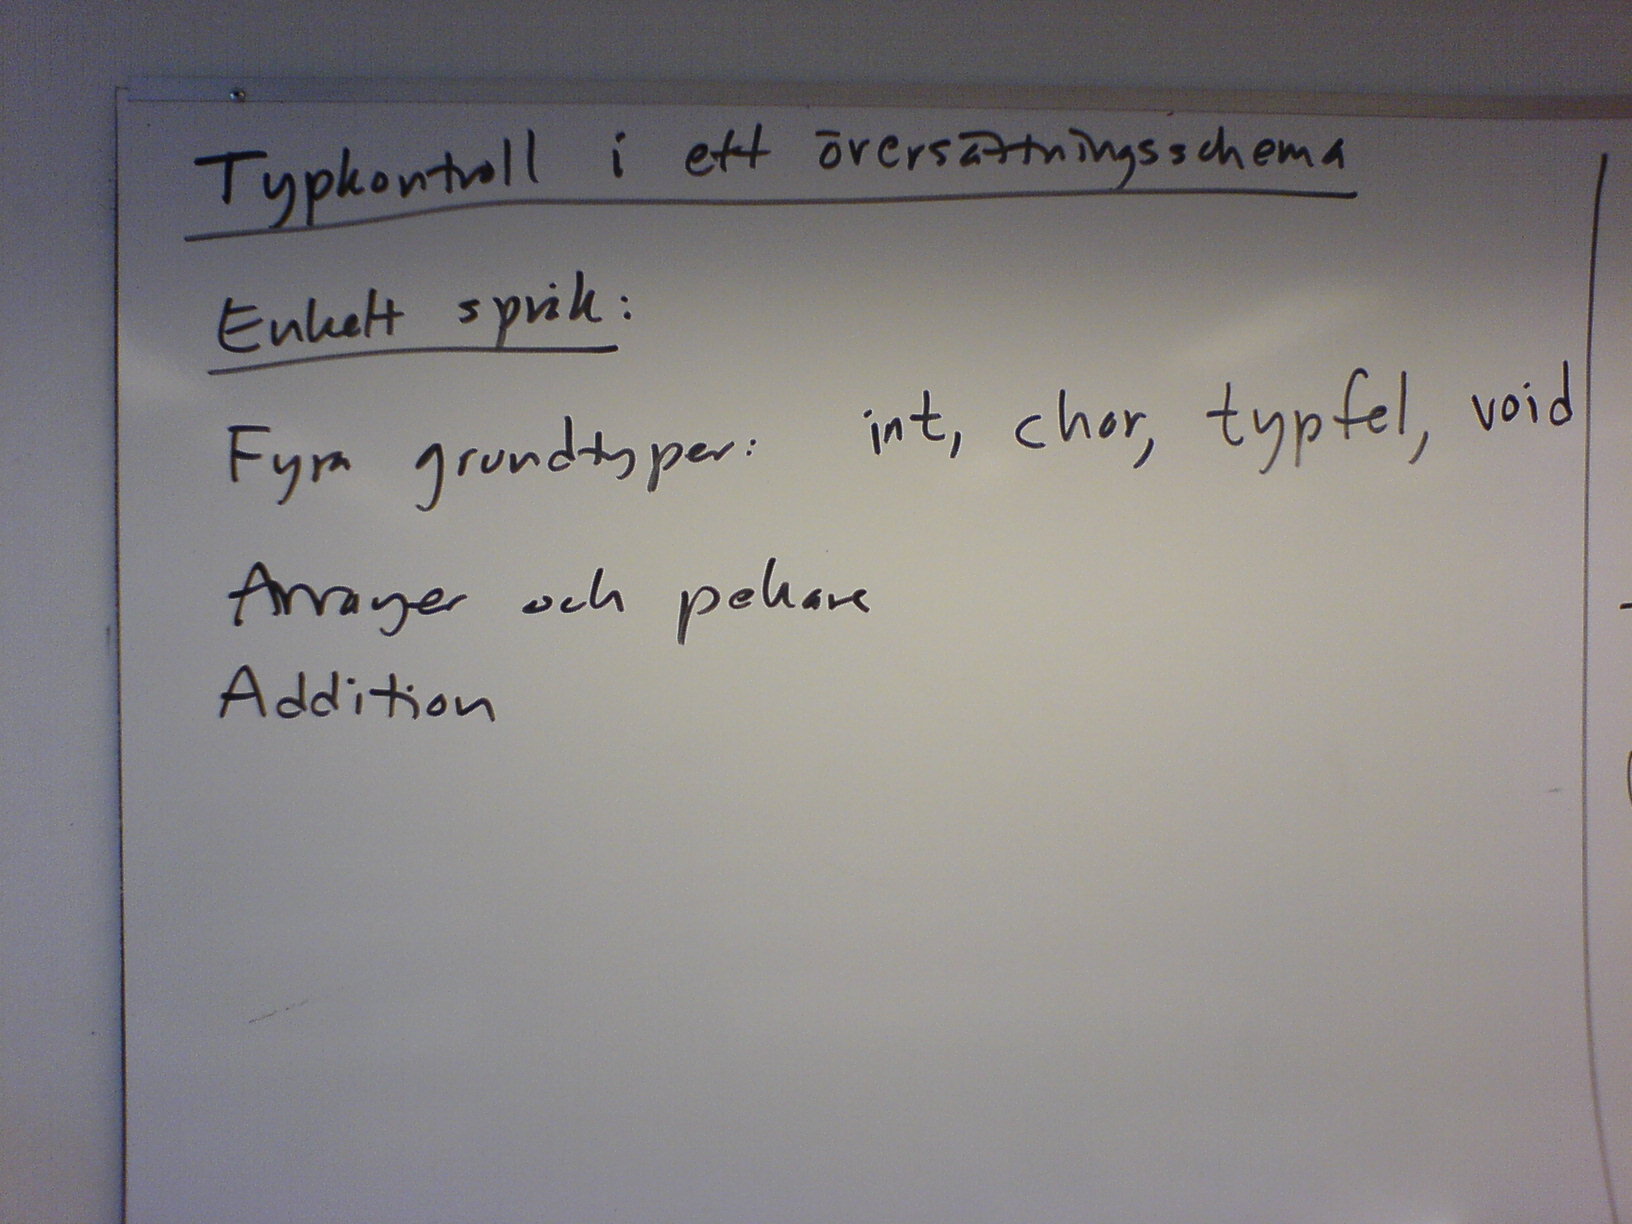 Typkontroll i ett översättningsschema
Enkelt språk:
Fyra grundtyper: int, char, typfel, void
Arrayer och pekare
Addition